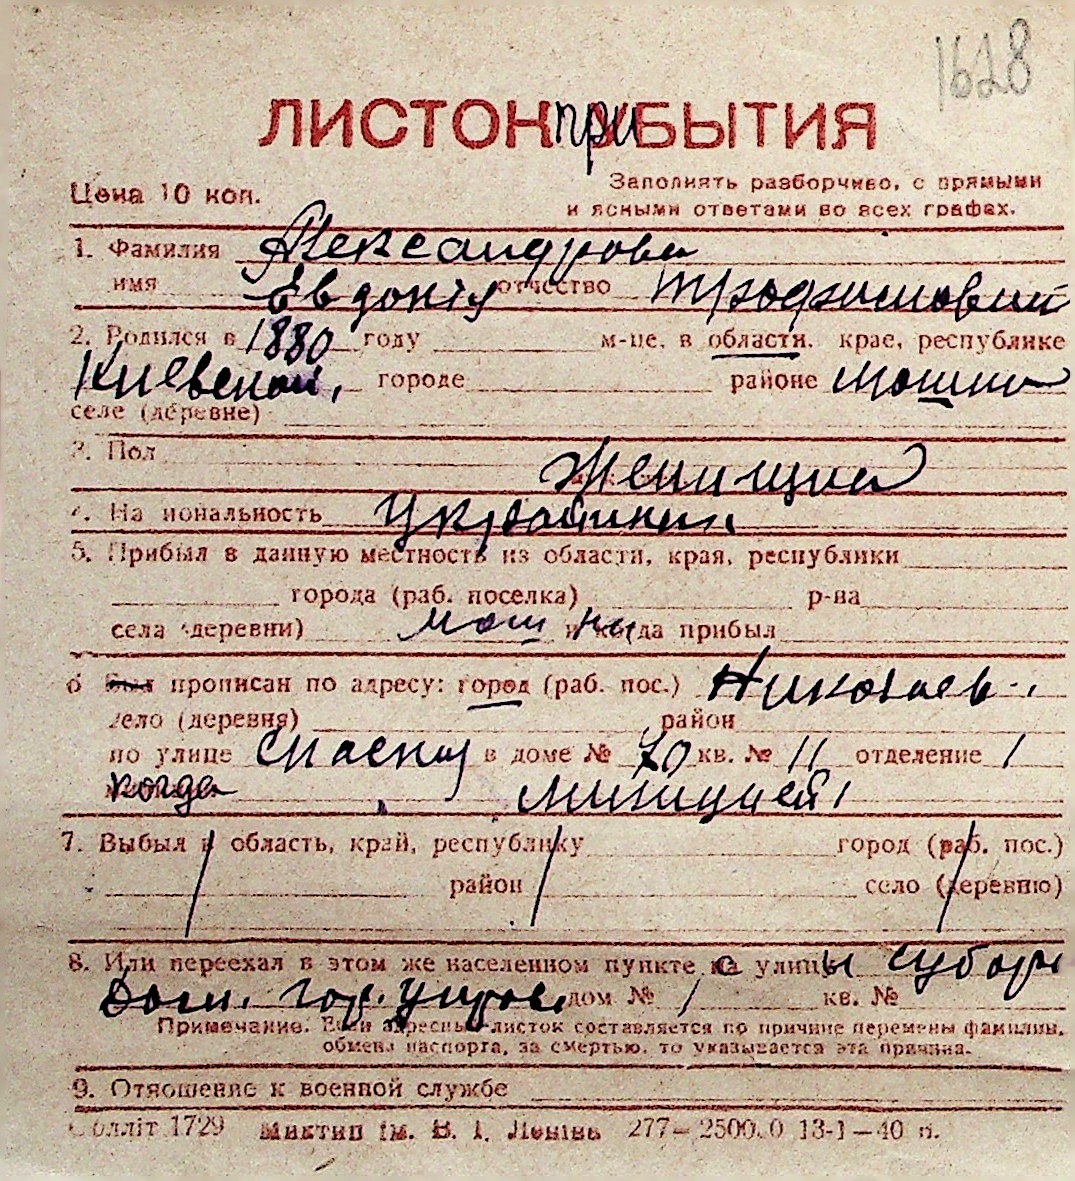 1628
ЛИСТОК ПРИБЫТИЯ
Цена 10 коп. Заполнять разборчиво, с прямыми
и ясными ответами во всех графах.
1. Фамилия Александрова
имя Евдокия отчество Трофимовна
2. Родился в 1880 году м-це, в области, крае, республике
Киевской, городе районе Мошны
селе (деревне)
3. Пол Женщина
4. Национальность Украинка
5. Прибыл в данную местность из области, края, республики
города (раб. поселка) р-на
села (деревни) Мошны и когда прибыл
6 Был прописан по адресу: город (раб. пос.) Николаев
село (деревня) район
по улице Спаск в доме № 70 кв. № 11 отделение 1
когда милицией
7. Выбыл в область, край, республику город (раб. пос.)
район село (деревню)
8. Или переехал в этом же населенном пункте с улицы
дом № кв. №
Примечание. Если адресный листок составляется по причине перемены фамилии,
обмена паспорта, за смертью, то указывается эта причина.
9. Отношение к военной службе
Обллiт 1729 Миктип iм. В. I. Ленiна 277—25000 13-1—40 п.